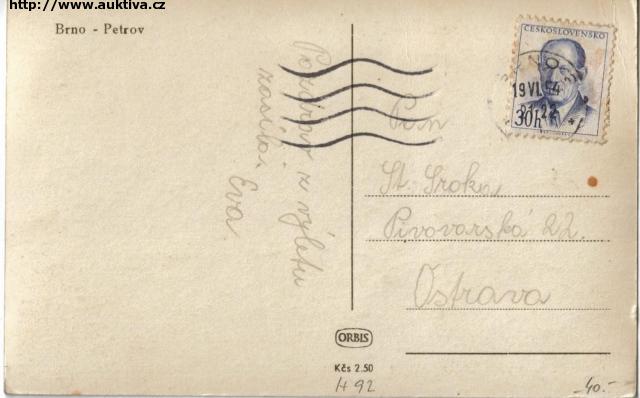 http://www.auktiva.cz
Brno - Petrov
ČESKOSLOVENSKO
BRNO
19 VI. 54
21-22
30h
Pozdrav z výletu
zasílá
Eva
Pan
St. Sroka
Pivovarská 22.
Ostrava
ORBIS
Kčs 2.50
H 92
-40.-